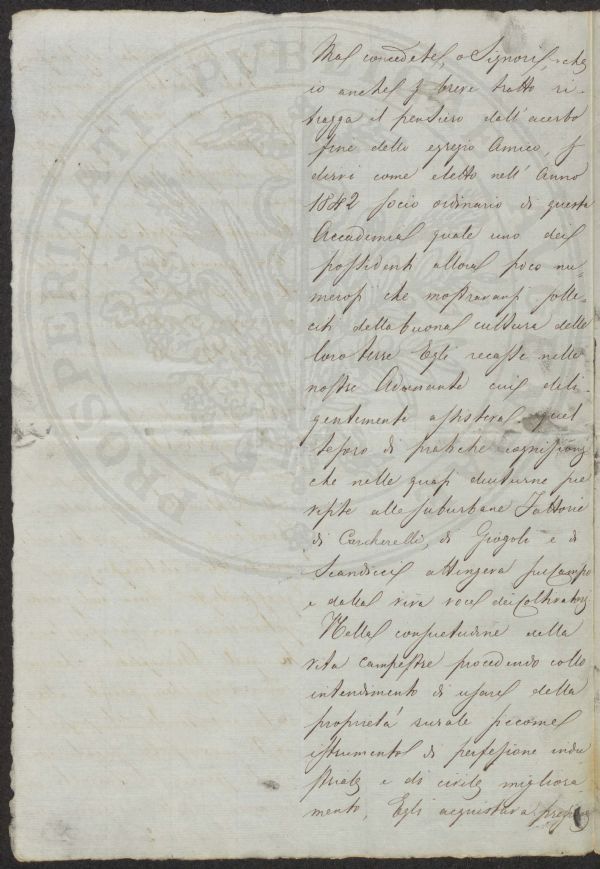 PROSPERITATI PUBLICAE
Ma concedete, o Signori, che
io anche p breve tratto ri-
tragga il pensiero dall' acerbo
fine dello egregio Amico, p
dirvi come eletto nell' Anno
1842 socio ordinario di questa
Accademia quale uno dei
possidenti allora poco nu-
merosi che mostravansi solle-
citi della buona cultura delle
loro terre Egli recasse nelle
nostre Adunanze cui dili-
gentemente assisteva quel
tesoro di pratiche cognizioni
che nelle quasi diuturne
visite alle suburbane Fattorie
di Carcherelli, di Giogoli e di
Scandicci attingeva sul campo
e dalla viva voce dei Coltivatori
Nella consuetudine della
vita campestre procedendo collo
intendimento di usare della
proprietà rurale siccome
istrumento di perfezione indu
striale e di civile migliora
mento, Egli acquistava